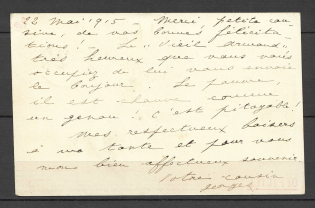 22 mai 1915 - Merci petite cou-
sine, de vos bonnes félicita-
tions ! Le "Vieil Armand",
très heureux que vous vous
occupiez de lui vous envoie
le bonjour. Le pauvre,
il est chauve comme
un genou : c'est pitoyable !
Mes respectueux baisers
à ma tante et pour vous
mon bien affectueux souvenir
Votre cousin
Georges